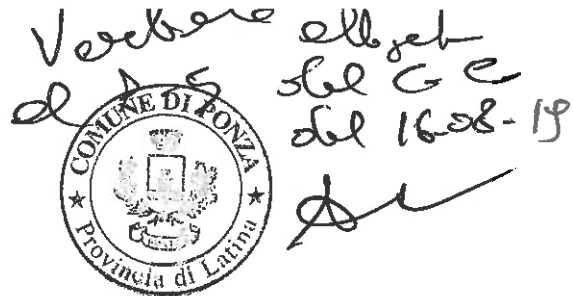 Verbale allegato
al n° 5 del C C
del 16-08-19
COMUNE DI PONZA
Provincia di Latina